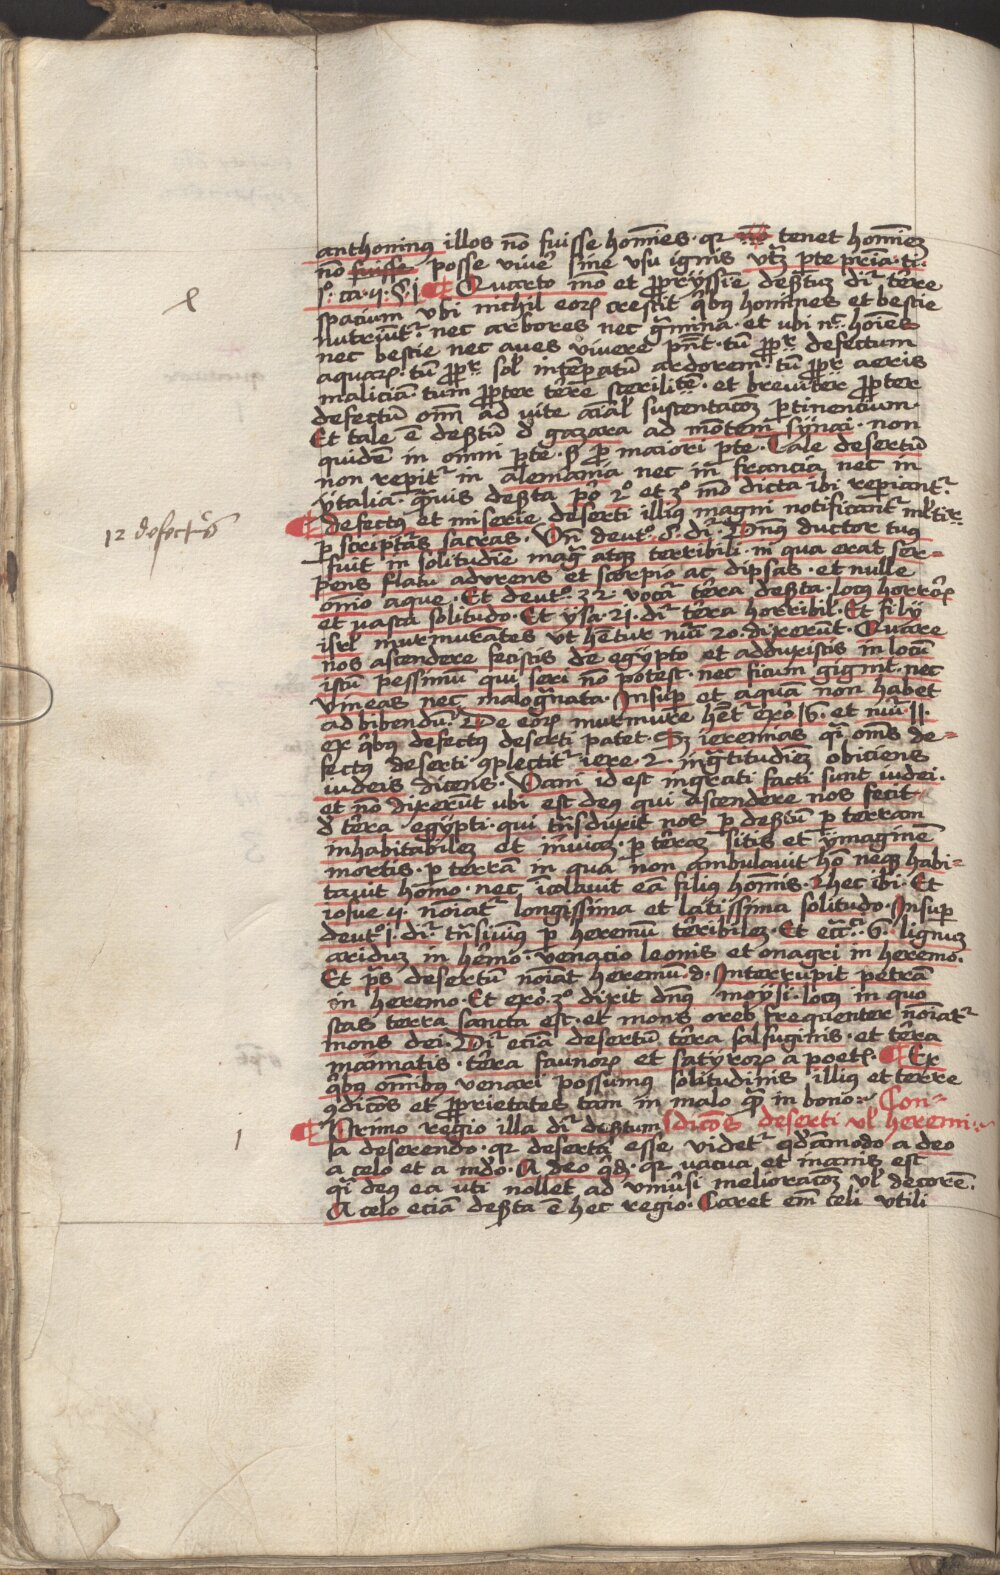 anthoninꝰ illos nō fuisse homīes · qr nō tenet homīes
nō fuisse posse viver̄ sine vsu ignis vtꝫ parte pria · ti ·
1° · ca · 4 · § · 1 ¶ Quarto mō et ꝓpryssime desertū di͛ terre
spacium vbi nichil eoꝝ crescit qͥbꝰ homines et bestie
nutriūt͛ nec arbores nec gͣmina · et ubi nͨ hoīes
nec bestie nec aues vivere pn̄t · tū ꝓpt͛ defectum
aquaꝝ · tū ꝓpt͛ sol͛ intēperatū ardorem · tū ꝓpt͛ aeris
maliciā · tum ꝓpter terre sterilitē · et breuiter ꝓpter
defectū om̄ ad vite aīal͛ sustentacōꝫ ꝑtinencium ·
Et tale ē desertū d͛ gazara ad mōtem synai · non
quidē in omni ꝑte · sꝫ ꝓ maiori ꝑte · Tale desertū
non reperit͛ in alemania nec in francia nec in
ytalia · qͣmuis deserta p͛o 2° et 3° mō dicta ibi reperiant͛ ·
¶ defectꝰ et miserie deserti illiꝰ magni notificant͛ ml̄tis͛
ꝑ scripturas sacras · Vn̄ deut° · 8 · di͛ · Dn̄s ductor tuꝰ
fuit in solitudine mag͛ atqꝫ terribili · in qua erat ser=
pens flatu adurens et scorpio ac dipsas · et nulle
om̄io aque · Et deut° · 32 · vocat͛ terra deserta · locꝰ horror͛
et vasta solitudo · Et ysa · 21 · di͛ terra horribil͛ · Et filij
isrl͛ murmurātes vt het͛ur nūi 20 · dixerūt · Quare
nos ascendere fecistis de egypto et adduxistis in locū
istū pessimū qui seri nō potest · nec ficum gignit · nec
vineas nec malogͣnata · Insuꝑ et aquā non habet
ad bibendū · De eoꝝ murmure het͛ exo͛ 16 · et nūi 11 ·
ex qͥbꝰ defectꝰ deserti patet · Sꝫ ieremias qͣi om̄s de=
fectꝰ deserti ꝯplectit͛ iere · 2 · ingͣtitudinē obiciens
iudeis dicens · Vani id est ingrati facti sunt iudei ·
et nō dixerūt ubi est deꝰ qui ascendere nos fecit
d͛ terra egypti · qui trāsduxit nos ꝑ desertū ꝑ terram
inhabitabilē et inuiaꝫ · ꝑ terrā sitis et ymaginē
mortis · ꝑ terrā in qua non ambulauit hō neqꝫ habi=
tauit homo · nec īcolauit eā filiꝰ homīs · hec ibi · Et
iosue 4 · noīat͛ longissima et latissima solitudo · Insuꝑ
deut° 1 · di͛ trāsiuimꝰ ꝑ heremū terribilē · Et ecc͛ci · 6 · lignuꝫ
aridū in hēmo · venacio leonis et onagri in heremo ·
Et pͣs desertū noīat heremū · d · Interrupit petrā
in heremo · Et exo͛ · 3° dixit dn̄s moysi · locꝰ in quo
stas terra sancta est · et mons oreb frequenter noīat͛
mons dei · Di͛ eciā desertū terra salsuginis · et terra
inanitatis · terra faunoꝝ et satyroꝝ a poet͛ · ¶ Ex
qͥbꝰ omībꝰ venari possumꝰ solitudinis illiꝰ et terre
ꝯdicōes et ꝓprietates tam in malo qͣ in bono · Con=
¶ Primo regio illa di͛ desertum dicōes deserti vl͛ heremi ·
la deserendo · qr deserta esse videt͛ qd̄amodo a deo
a celo et a mūdo · A deo qͥdē · qr vacua et inanis est
qͣi deꝰ ea uti nollet ad vniūsi melioracōꝫ vl͛ decorē ·
A celo eciā deserta ē hec regio · Caret em̄ celi vtili
12 defectꝰ
1